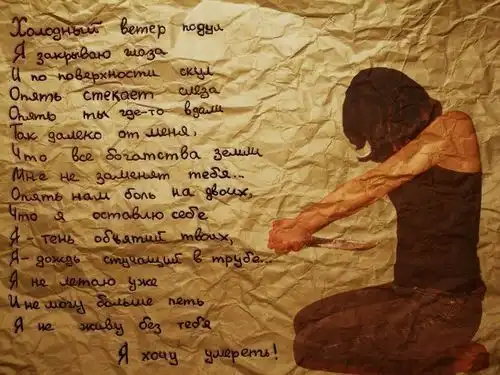 Холодный ветер подул
Я закрываю глаза
И по поверхности скул
Опять стекает слеза
Опять ты где-то вдали
Так далеко от меня,
Что все богатства земли
Мне не заменят тебя...
Опять нам боль на двоих,
Что я оставлю себе
Я - тень объятий твоих,
Я - дождь стучащий в трубе...
Я не летаю уже
И не могу больше петь
Я не живу без тебя
Я хочу умереть!